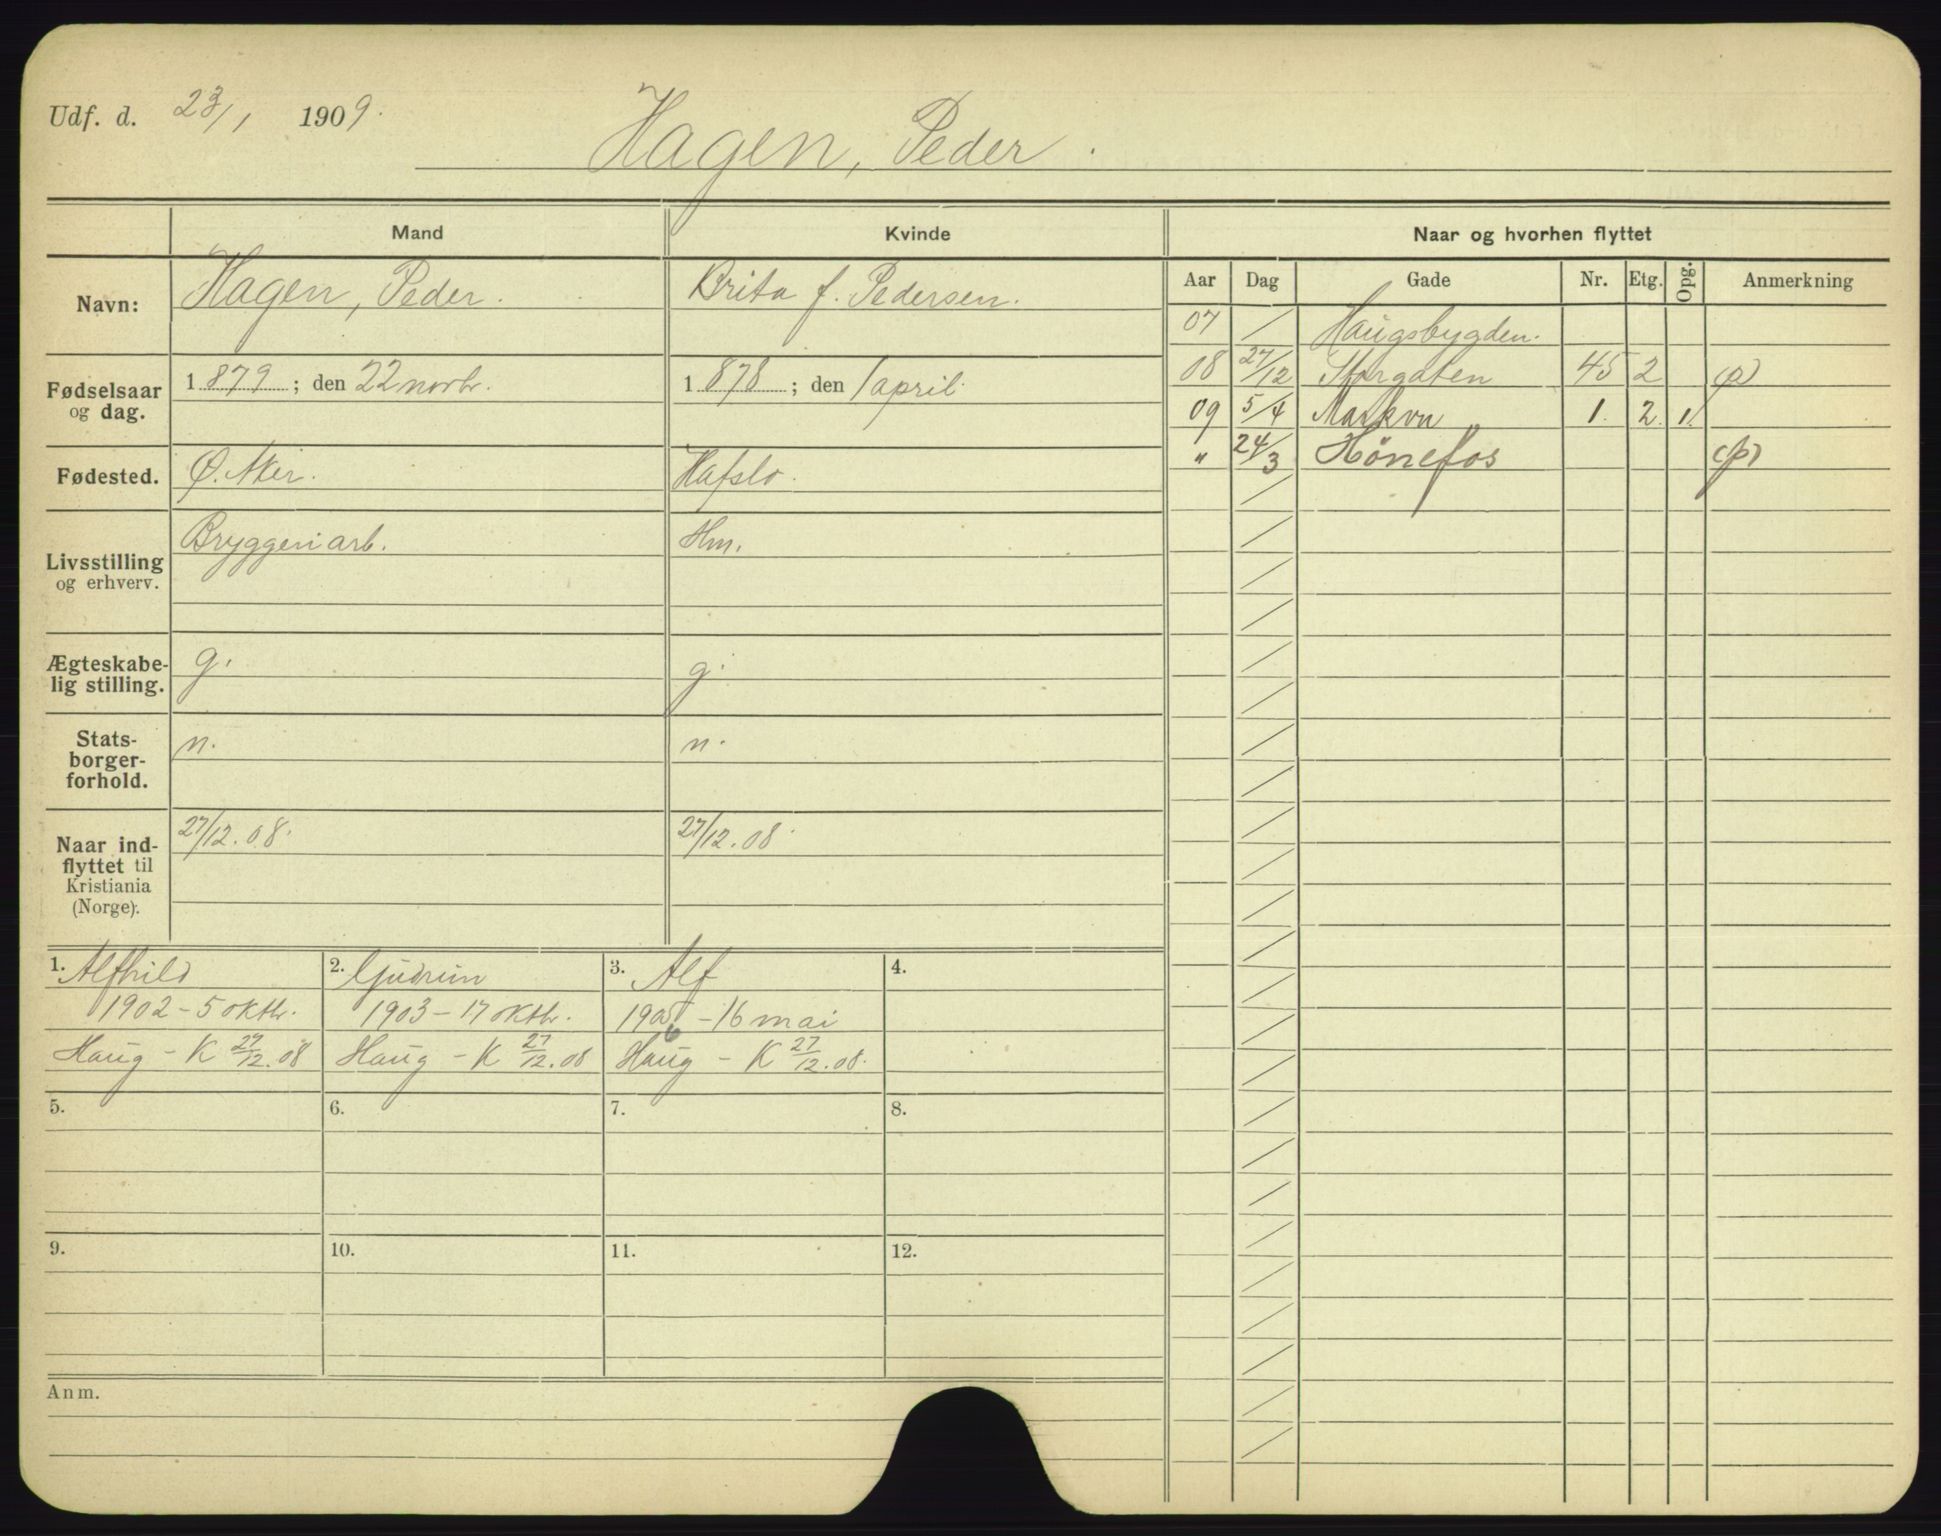 Udf. d. 23/1 1909.
Hagen, Peder.
Mand Kvinde Naar og hvorhen flyttet
Aar Dag Gade Nr. Etg. Opg. Anmerkning
Navn: Hagen, Peder. Brita f. Pedersen.
07 Haugsbygden.
08 27/12 Storgaten 45 2 (p)
09 5/4 Markvn 1. 2. 1.
" 24/3 Hønefos (p)
Fødselsaar og dag. 1879; den 22 novbr. 1878; den 1 april.
Fødested. Ø. Aker. Hafslo.
Livsstilling og erhverv. Bryggeriarb. Hm.
Ægteskabe-
lig stilling. g. g.
Stats-
borger-
forhold. n. n.
Naar ind-
flyttet til
Kristiania
(Norge). 27/12.08. 27/12.08.
1. Alfhild
1902 - 5 oktbr.
Haug - K 27/12.08
2. Gudrun
1903 - 17 oktbr.
Haug - K 27/12.08
3. Alf
1906 - 16 mai
Haug - K 27/12.08.
4.
5. 6. 7. 8.
9. 10. 11. 12.
Anm.